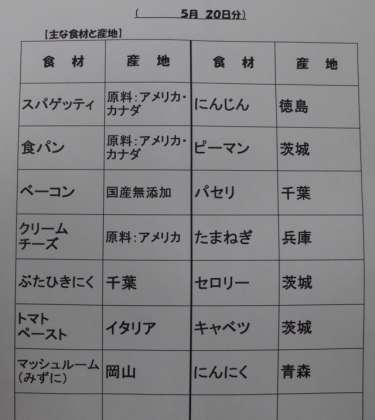 ( 5月 20日分)
【主な食材と産地】
食 材 産 地 食 材 産 地
スパゲッティ 原料:アメリカ・ にんじん 徳島
カナダ
食パン 原料:アメリカ・ ピーマン 茨城
カナダ
ベーコン 国産無添加 パセリ 千葉
クリーム
チーズ 原料:アメリカ たまねぎ 兵庫
ぶたひきにく 千葉 セロリー 茨城
トマト
ペースト イタリア キャベツ 茨城
マッシュルーム
(みずに) 岡山 にんにく 青森